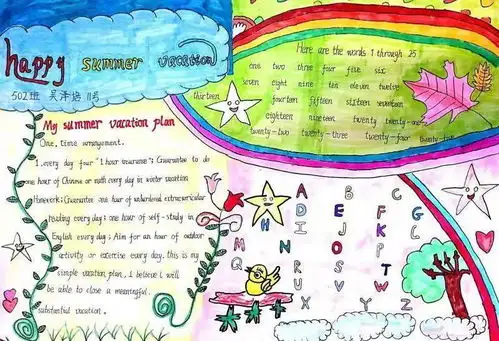 happy summer vacation
502班 吴泽培 11号
My summer vacation plan
One, time arrangement.
1. every day four "1 hour insurance": Guarantee to do
one hour of Chinese or math every day in winter vacation
Homework; Guarantee one hour of unlimited extracurricular
reading every day; one hour of self-study in
English every day; Aim for an hour of outdoor
activity or exercise every day. this is my
simple vacation plan, I believe I will
be able to close a meaningful.
substantial vacation.
Here are the words 1 through 25
one two three four five six
seven eight nine ten eleven twelve
thirteen fourteen fifteen sixteen seventeen
eighteen nineteen twenty twenty-one
twenty-two twenty-three twenty-four twenty-
A B C
D E F G
H I J K L
M N O P
Q R S T
U V W
X Y Z